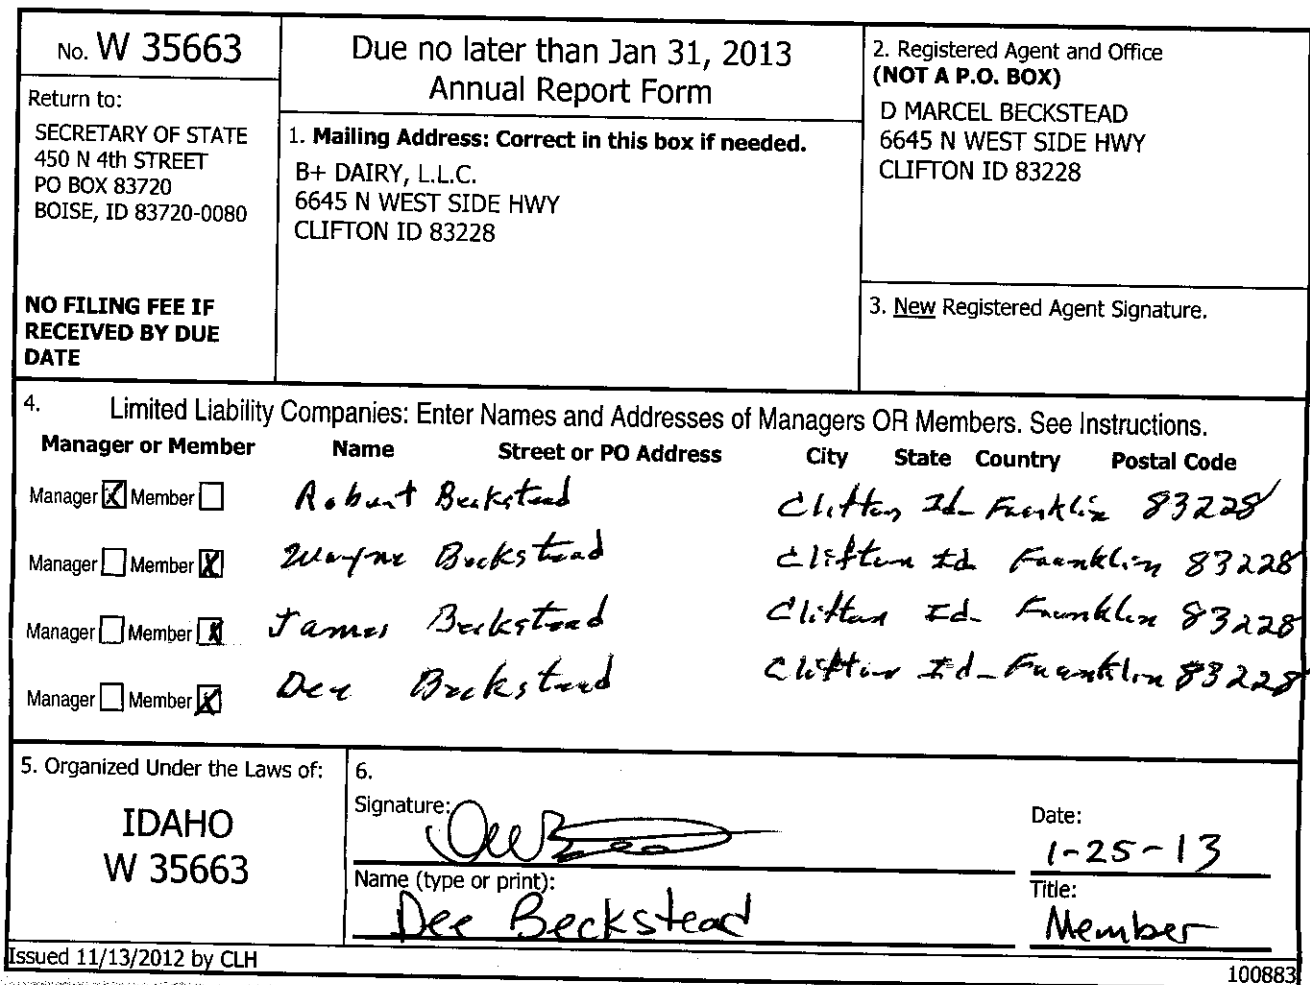 No. W 35663
Return to:
SECRETARY OF STATE
450 N 4th STREET
PO BOX 83720
BOISE, ID 83720-0080
NO FILING FEE IF
RECEIVED BY DUE
DATE
Due no later than Jan 31, 2013
Annual Report Form
1. Mailing Address: Correct in this box if needed.
B+ DAIRY, L.L.C.
6645 N WEST SIDE HWY
CLIFTON ID 83228
2. Registered Agent and Office
(NOT A P.O. BOX)
D MARCEL BECKSTEAD
6645 N WEST SIDE HWY
CLIFTON ID 83228
3. New Registered Agent Signature.
4. Limited Liability Companies: Enter Names and Addresses of Managers OR Members. See Instructions.
Manager or Member Name Street or PO Address City State Country Postal Code
Manager X Member Robert Beckstead Clifton Id- Franklin 83228
Manager Member X Wayne Beckstead Clifton Id. Franklin 83228
Manager Member X James Beckstead Clifton Id- Franklin 83228
Manager Member X Dee Beckstead Clifton Id- Franklin 83228
5. Organized Under the Laws of:
IDAHO
W 35663
6.
Signature:
Date:
1-25-13
Name (type or print):
Dee Beckstead
Title:
Member
Issued 11/13/2012 by CLH
100883